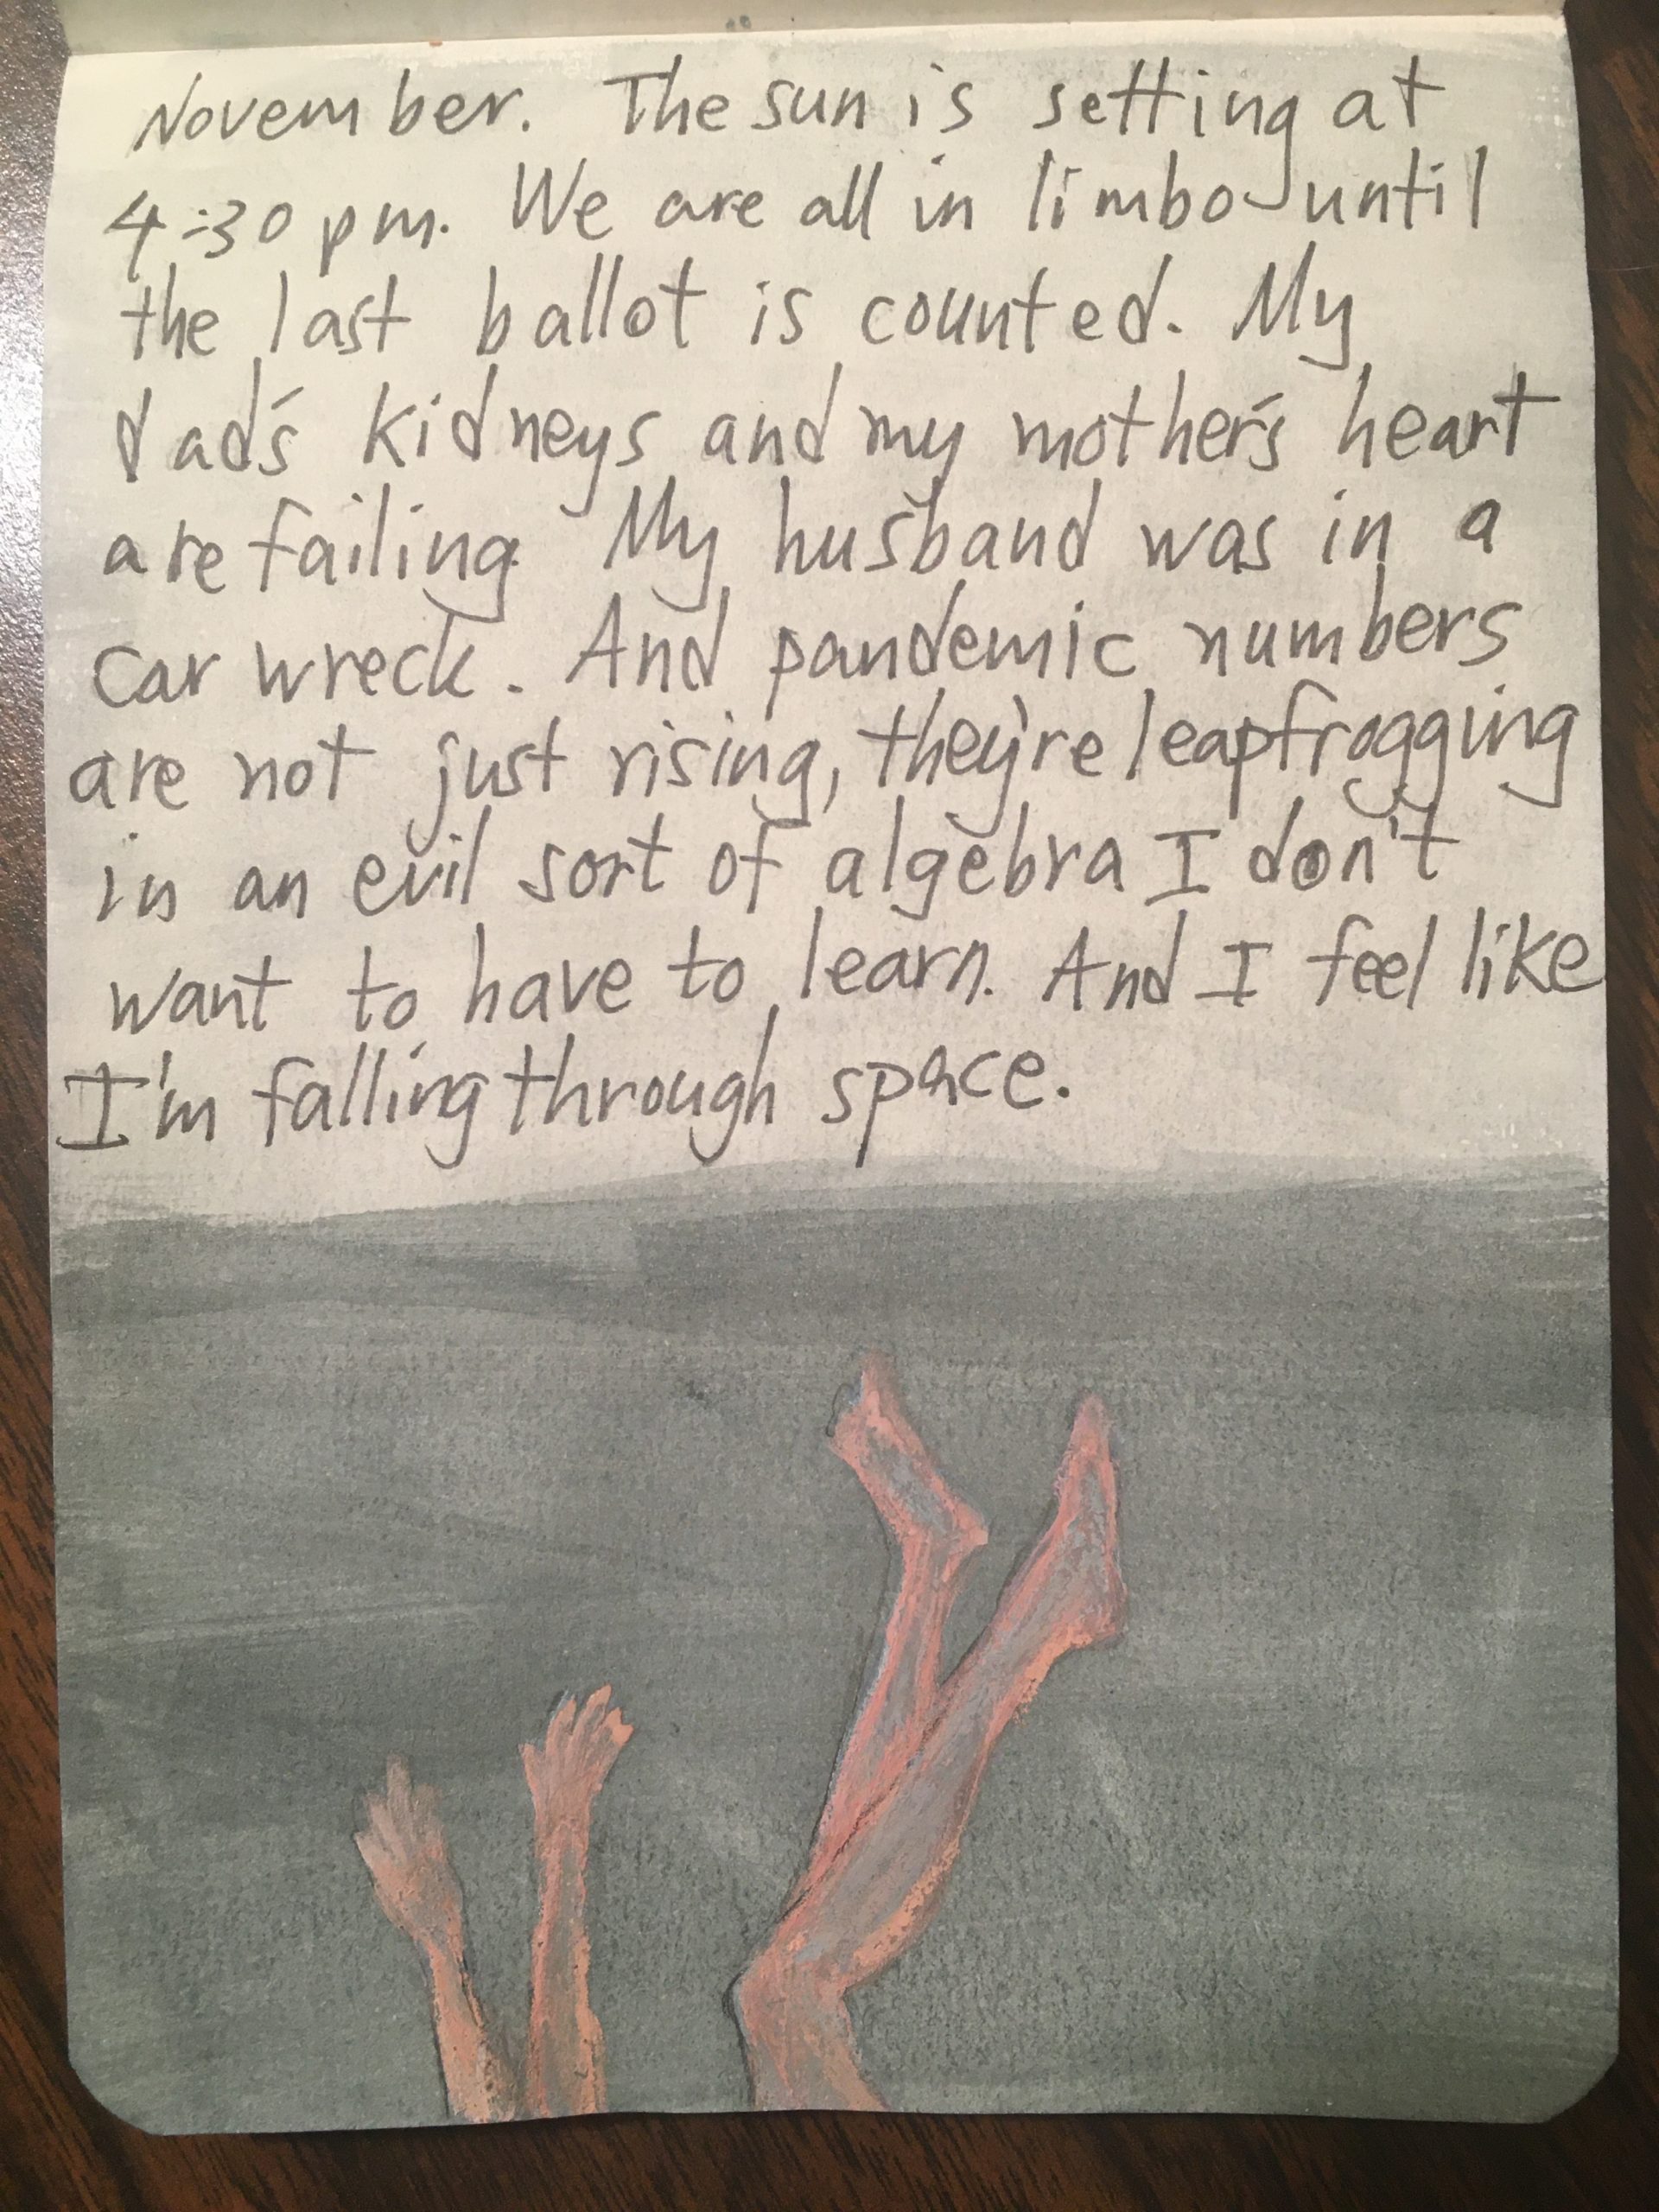 November. The sun is setting at
4:30 pm. We are all in limbo until
the last ballot is counted. My
dad's kidneys and my mother's heart
are failing. My husband was in a
car wreck. And pandemic numbers
are not just rising, they're leapfrogging
in an evil sort of algebra I don't
want to have to learn. And I feel like
I'm falling through space.